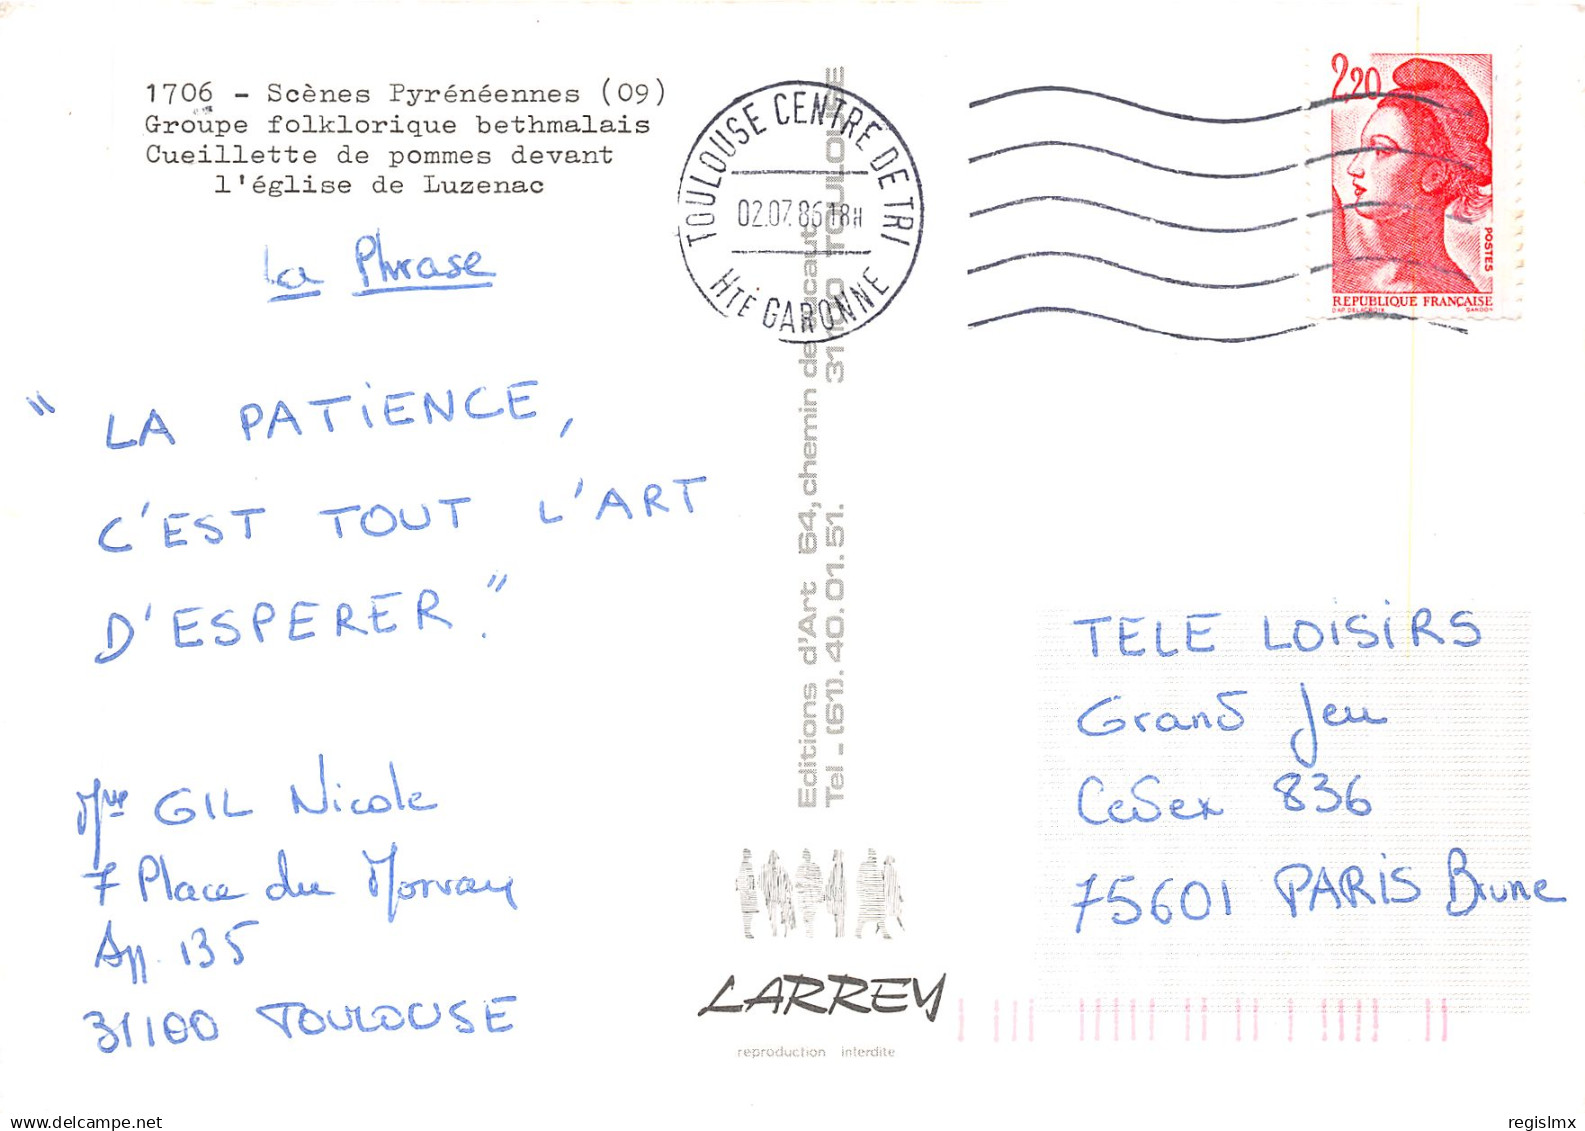 1706 - Scènes Pyrénéennes (09)
Groupe folklorique bethmalais
Cueillette de pommes devant
l'église de Luzenac
La Phrase
" LA PATIENCE,
C'EST TOUT L'ART
D'ESPERER."
Mme GIL Nicole
7 Place du Morvan
App. 135
31100 TOULOUSE
TOULOUSE CENTRE DE TRI
02.07.86 18H
HTE GARONNE
Editions d'Art 64, chemin de
31100 TOULOUSE
Tel - (61). 40.01.51.
LARREY
reproduction interdite
2,20
POSTES
REPUBLIQUE FRANÇAISE
D'AP. DELACROIX GANDON
TELE LOISIRS
Grand Jeu
Cedex 836
75601 PARIS Brune
regislmx